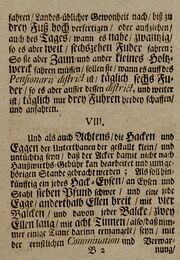 fahren, Landes-üblicher Gewonheit nach, biß zu
drey Fuß hoch verfertigen, oder ausziehen,
auch des Tages, wann es nahe, zwantzig,
so es aber weit, sechszehen Fuder fahren;
So sie aber Zaun- und ander kleines Holtz-
werck fahren müssen, sollen sie, wann es auf des
Pensionarii district ist, täglich sechs Fu-
der, so es aber ausser dessen district, und weiter
ist, täglich nur drey Fuhren herbey schaffen,
und anfahren.
VIII.
Und als auch Achtens, die Hacken und
Eggen der Unterthanen der gestalt klein, und
untüchtig seyn, daß der Acker damit nicht nach
Haußwirths-Gebühr kan bearbeitet und zum ge-
hörigen Stande gebracht werden; Als soll hin-
künfftig ein jedes Hack-Eysen, an Eysen und
Stahl sieben Pfund schwer, und eine jede
Egge, anderthalb Ellen breit, mit vier
Balcken, und davon jeder Balcke, zwey
Ellen lang, mit acht Tinnen, also, daß nim-
mer einige Tinne darinn ermangele, seyn, mit
der ernstlichen Commination und Verwar-
B 2
nung,